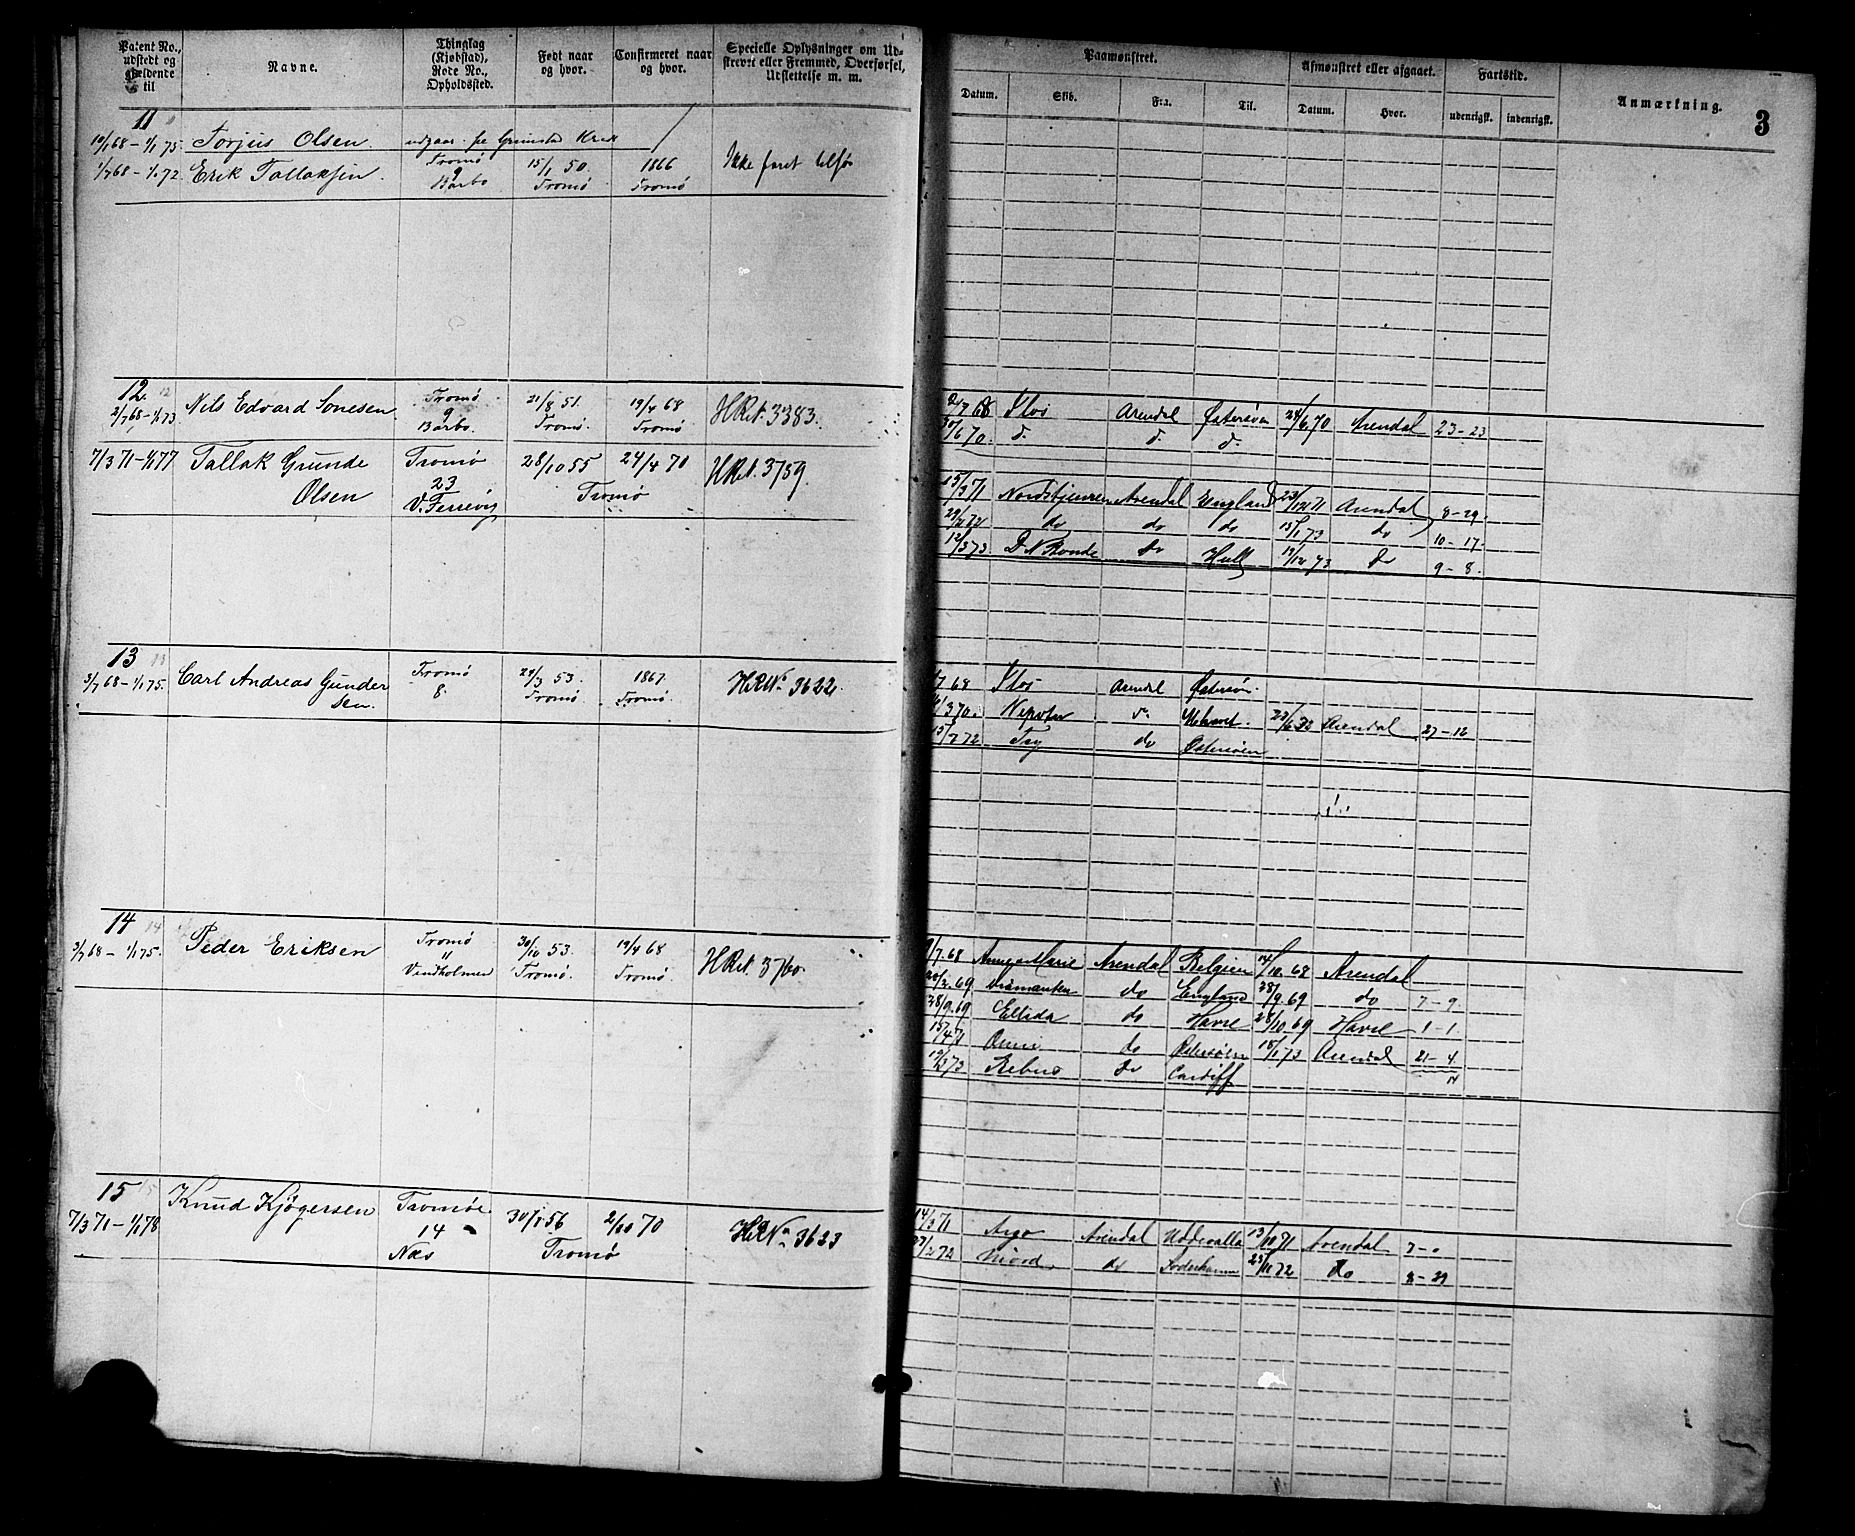 Patent No., udstedt og gjeldende til
Navne.
Thinglag (Kjøbstad), Rode No., Opholdssted.
Født naar og hvor.
Confirmeret naar og hvor.
Specielle Oplysninger om Udskrevet eller Fremmed, Overførsel, Udslettelse m. m.
Paamønstret.
Datum. Skib. Fra. Til.
Afmønstret eller afgaaet.
Datum. Hvor.
Fartstid.
udenrigsk. indenrigsk.
Anmærkning.
3
11
10/1 68 – 1/1 75. Torjus Olsen udgaar fra Grimstad Kreds
1/7 68 – 1/1 72. Erik Tallaksen. Tromø 9 Barbo 15/1 50. Tromø 1866 Tromø Ikke faret tilsøs
12.
2/7 68 – 1/1 73 Nils Edvard Sonesen Tromø 9 Barbo. 21/8 51. Tromø. 19/4 68 Tromø. HRet. 3383.
2/7 68 Arendal Østersøen 24/6 70 Arendal 23 – 23
30/6 70. d. d. d.
7/3 71 – 1/1 77 Tallak Grunde Olsen Tromø 23 V. Fersevig 28/10 55 24/4 70 Tromø HRet. 3759.
15/3 71 Nordstjernen Arendal England 23/12 71 Arendal 8 – 29.
29/2 72 do do do 15/1 73 do 10 – 17.
12/3 73 do Hull 19/12 73 do 9 – 8.
13
3/7 68 – 1/1 75. Carl Andreas Gundersen. Tromø 8. 24/3 53. Tromø. 1867. Tromø. HRNo. 3622.
7 68 Arendal Østersøn.
3 70. d. 23/6 Arendal 27 – 16
15/7 72 do Østersøen
14
3/7 68 – 1/1 75. Peder Eriksen Tromø 11 Vindholmen 30/10 53. Tromø. 19/4 68 Tromø. HRet. 3760.
/7 68 Arendal Belgien 14/10 68 Arendal
20/3 69 Diamanten do England 28/9 69 do 7 – 9.
28/9 69 Ellida do Havre 28/10 69 Havre 1 – 1.
15/4 71 do Østersøen 15/1 73 Arendal 21 – 4
12/3 73 Rebus do Cardiff
15
7/3 71 – 1/1 78 Knud Kjøgersen Tromøe 14 Næs 30/1 56 2/10 70 Tromø HRNo. 3623
14/3 71 Argo Arendal Uddevalla 13/10 71 Arendal 7 – 0
27/2 72 do Söderhamn 25/11 72 do 8 – 29